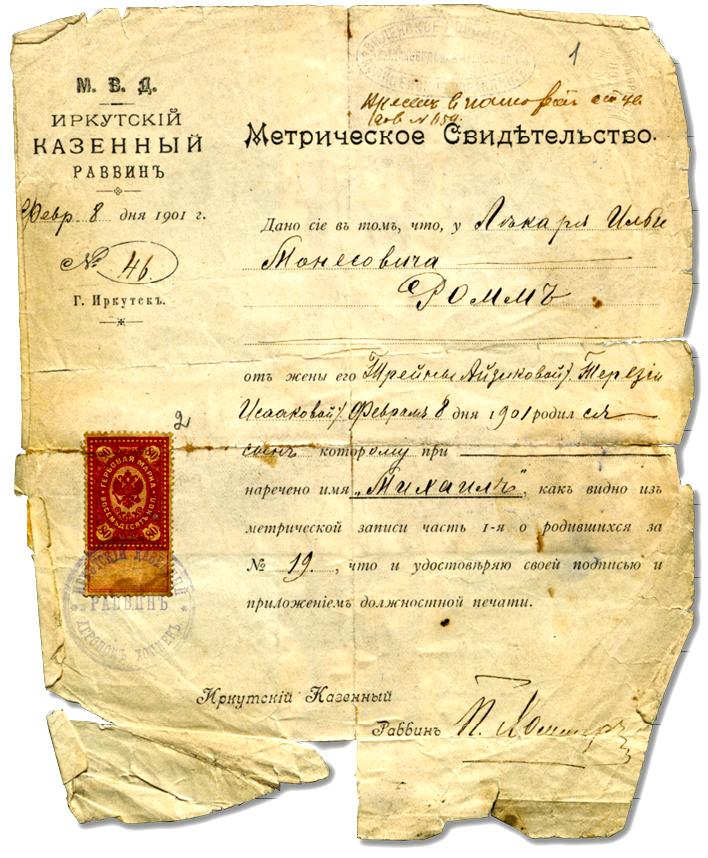 1
М. В. Д.
ИРКУТСКІЙ
КАЗЕННЫЙ
РАВВИНЪ
Февр. 8 дня 1901 г.
№ 46.
Г. Иркутскъ.
Метрическое Свидѣтельство.
Дано сіе въ томъ, что, у Лѣкаря Ильи
Монесовича
РОММЪ
отъ жены его Трейны Айзиковой/Терезіи
Исааковой/Февраля 8 дня 1901 родился
сынъ которому при
наречено имя „Михаилъ", какъ видно изъ
метрической записи часть 1-я о родившихся за
№ 19, что и удостовѣряю своей подписью и
приложеніемъ должностной печати.
2
80 80
ГЕРБОВАЯ МАРКА
ВОСЕМЬДЕСЯТЪ КОП.
80 80
ИРКУТСКІЙ КАЗЕННЫЙ
РАВВИНЪ
Иркутскій Казенный
Раввинъ